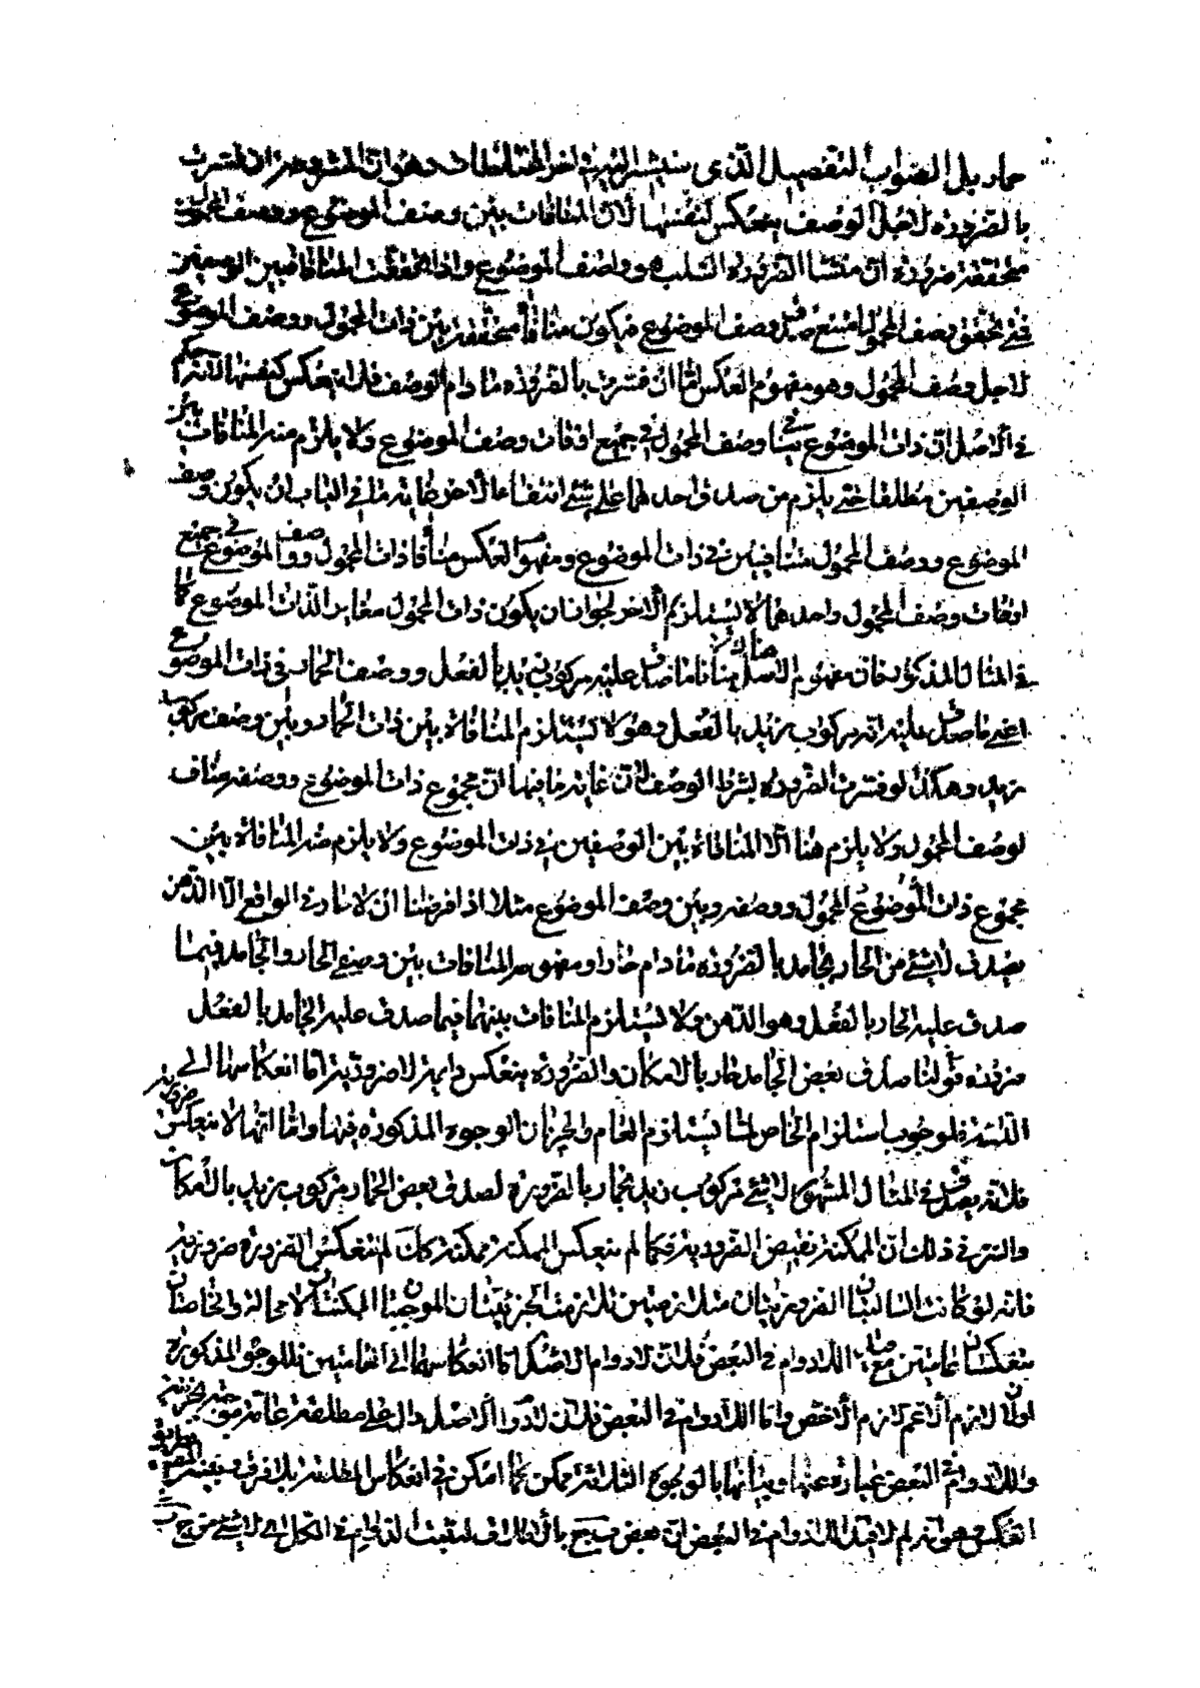 حمار بل الصواب التفصيل الذى سنشير اليه فى اخر المختلطات وهو ان المشروطة ان فسرت
بالضرورة لاجل الوصف ينعكس كنفسها لان المنافات بين وصف الموضوع ووصف المحمول
متحققة ضرورة ان منشأ الضرورة السلب هو وصف الموضوع واذا تحققت المنافاة بين الوصفين
فمتى تحقق وصف المحمول امتنع صدق وصف الموضوع فيكون منافاة متحققة بين ذات المحمول ووصف الموضوع
لاجل وصف المحمول وهو مفهوم العكس اما ان فسرت بالضرورة ما دام الوصف فلا ينعكس كنفسها لان الحكم
فى الاصل ان ذات الموضوع ينافى وصف المحمول فى جميع اوقات وصف الموضوع ولا يلزم منه المنافات بين
الوصفين مطلقا حتى يلزم من صدق احدهما على شئ انتفاء الاخر غاية ما فى الباب ان يكون وصف
الموضوع ووصف المحمول متنافيين فى ذات الموضوع ومفهوم العكس منافاة ذات المحمول ووصف الموضوع فى جميع
اوقات وصف المحمول واحدهما لا يستلزم الاخر لجواز ان يكون ذات المحمول مغاير الذات الموضوع كما
فى المثال المذكور فان مفهوم الاصل هناك منافاة ما صدق عليه مركوب زيد بالفعل ووصف الحمار فى ذات الموضوع
اعنى ما صدق عليه انه مركوب زيد بالفعل وهو لا يستلزم المنافاة بين ذات الحمار وبين وصف مركوب
زيد وهكذا لو فسرت الضرورة بشرط الوصف لان غاية ما فيها ان مجموع ذات الموضوع ووصفه مناف
لوصف المحمول ولا يلزم هنا الا المنافاة بين الوصفين فى ذات الموضوع ولا يلزم منه المنافاة بين
مجموع ذات المحمول ووصفه وبين وصف الموضوع مثلا اذا فرضنا ان لا حار فى الواقع الا الدهن
يصدق لا شئ من الحار بجامد بالضرورة ما دام حارا ومفهومه المنافات بين وصفى الحار والجامد فيما
صدق عليه الحار بالفعل وهو الدهن ولا يستلزم المنافات بينهما فيما صدق عليه الجامد بالفعل
ضرورة قولنا صادق بعض الجامد حار بالامكان والضرورة ينعكس دايمة لا ضرورية اما انعكاسها الى
الدائمة فلوجوب استلزام الخاص لما يستلزم العام ولجريان الوجوه المذكورة فيها واما انها لا ينعكس ضرورية
فلانه يصدق فى المثال المشهور لا شئ من مركوب زيد بحمار بالضرورة لصدق بعض الحمار مركوب زيد بالامكان
والسر فى ذلك ان الممكنة نقيض الضرورية فكما لم ينعكس الممكنة ممكنة كذلك لم تنعكس الضرورة ضرورية
فانه لو كانت السالبتان الضروريتان متلازمتين تلازمت الجزئيتان الموجبتان الممكنتان لا محالة والخاصتان
تنعكسان عامتين مع اللادوام فى البعض فلان لادوام الاصل اما انعكاسهما الى العامتين فللوجوه المذكورة
اولا لان لازم الاعم لازم الاخص واما اللادوام فى البعض فلان لادوام الاصل دال على مطلقة عامة موجبة جزئية
واللادوام فى البعض عبارة عنها وبيانها بالوجوه الثلاثة ممكن كما امكن فى انعكاس المطلقة بلا فرق ويفسر المصنف بطريق
العكس وهو انه لو لا قيد اللادوام فى البعض اى بعض ب ج بالاطلاق لثبت الدوام فى الكل اى لا شئ من ج ب